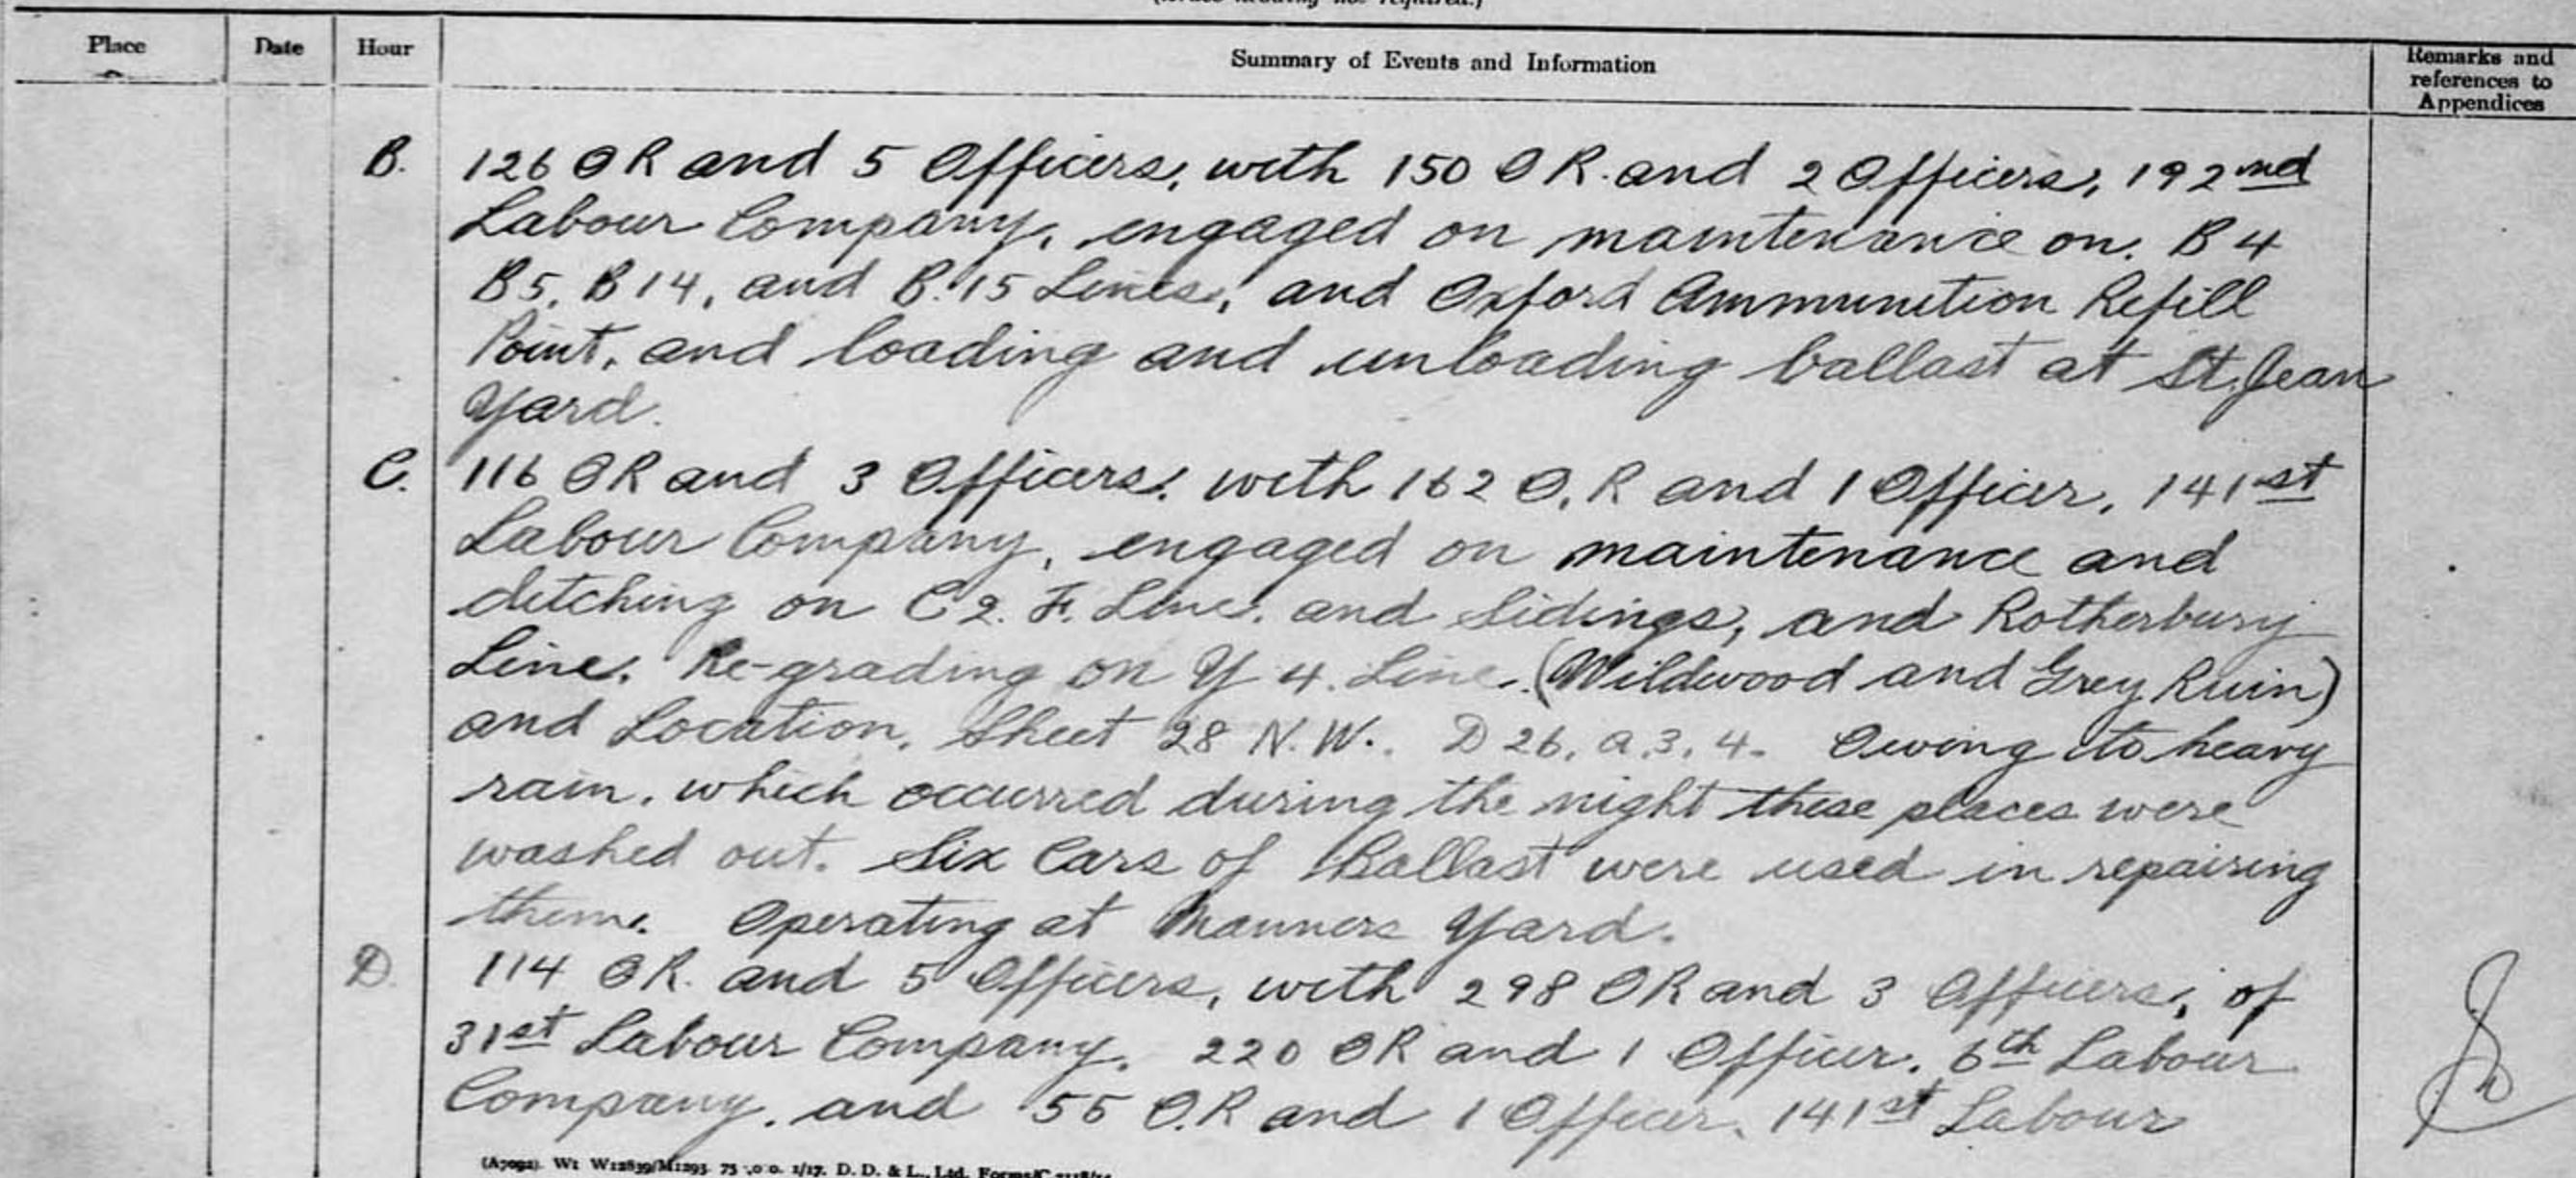 Place Date Hour Summary of Events and Information Remarks and references to Appendices
B. 126 OR and 5 Officers, with 150 OR. and 2 Officers, 192nd
Labour Company, engaged on maintenance on. B 4
B5, B14, and B.15 Lines, and Oxford Ammunition Refill
Point, and loading and unloading ballast at St. Jean
Yard.
C. 116 OR and 3 Officers, with 162 O.R and 1 Officer, 141st
Labour Company, engaged on maintenance and
ditching on C2. F. Line, and Sidings, and Rotherbury
Line. Re-grading on Y 4. Line. (Wildwood and Grey Ruin)
and Location. Sheet 28 N.W.. D 26. a.3.4. Owing to heavy
rain, which occurred during the night these places were
washed out. Six Cars of Ballast were used in repairing
them. Operating at Manners Yard.
D. 114 OR. and 5 Officers, with 298 OR and 3 Officers, of
31st Labour Company. 220 OR and 1 Officer. 6th Labour
Company, and 55 O.R and 1 Officer, 141st Labour
D. D. & L., Ltd.